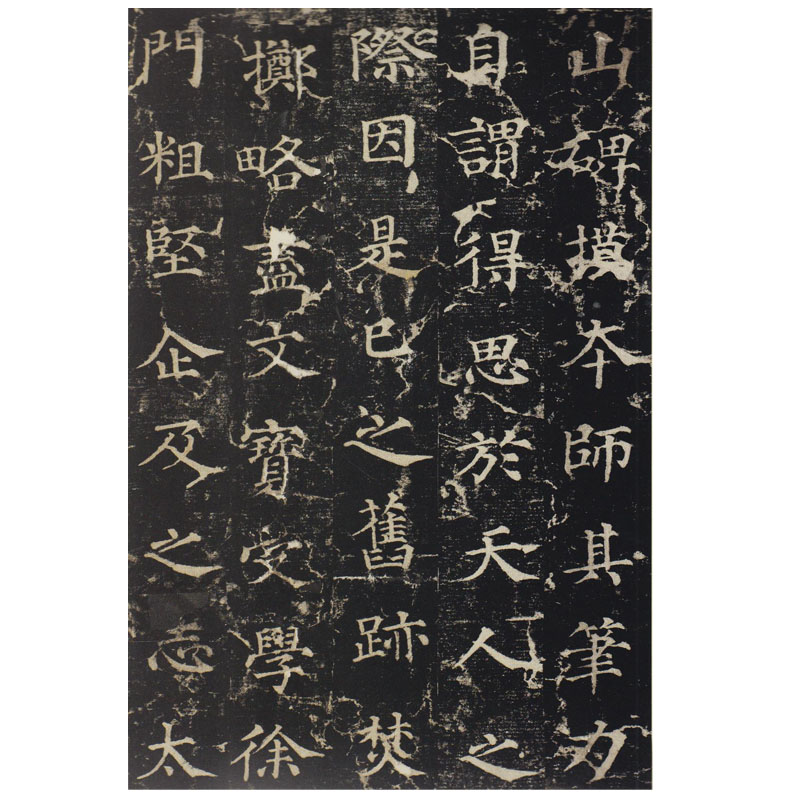 山碑摸夲師其筆力
自謂得思於天人之
際因是已之舊跡焚
擲略盡文寶受學徐
門粗堅企及之志太